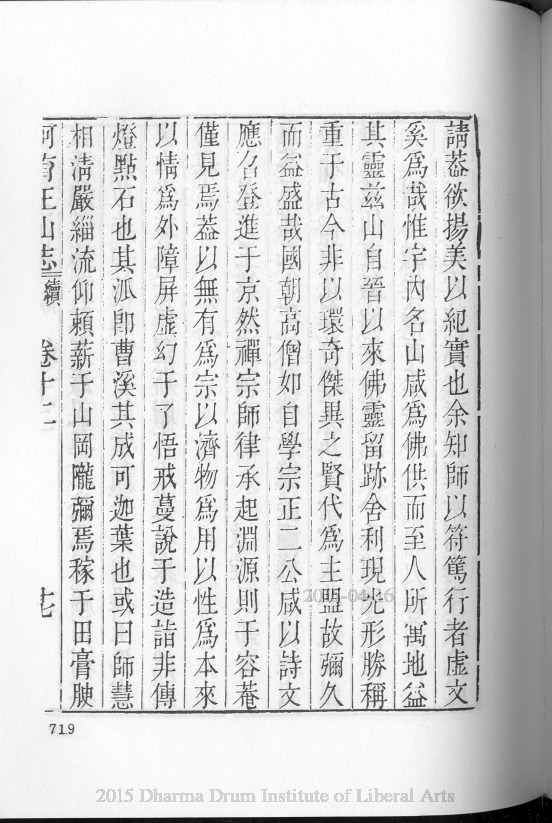 請葢欲揚美以紀實也余知師以符篤行者虛文
奚爲哉惟宇內名山咸爲佛供而至人所寓地益
其靈茲山自晉以來佛靈留跡舍利現光形勝稱
重于古今非以環奇傑異之賢代爲主盟故彌久
而益盛哉國朝高僧如自學宗正二公咸以詩文
應名登進于京然禪宗師律承起淵源則于容菴
僅見焉葢以無有爲宗以濟物爲用以性爲本來
以情爲外障屏虛幻于了悟戒蔓說于造詣非傳
燈點石也其派卽曹溪其成可迦葉也或曰師慧
相淸嚴緇流仰賴薪于山岡隴彌焉稼于田膏腴
阿育王山志 續 卷十二 七
719
2015-04-16
2015 Dharma Drum Institute of Liberal Arts